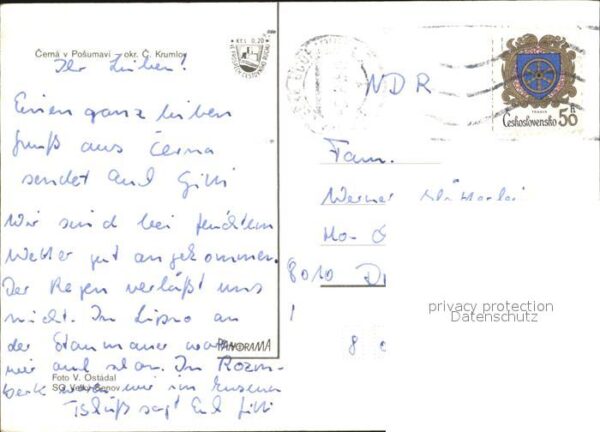 Černá v Pošumaví okr. Č. Krumlov
Kčs 0,20
Ihr Lieben!
Einen ganz lieben
Gruß aus Černa
sendet Gitti
Wir sind bei feuchtem
Wetter gut angekommen.
Der Regen verläßt uns
nicht. In Lipno an
der Staumauer waren
wir schon. In Rozm-
berk waren wir im
Tschüß sagt Gitti
PANORAMA
Foto V. Ostádal
SO Velký Šenov
NDR
Fam.
Werner
8010
8
Československo 50 h
privacy protection
Datenschutz